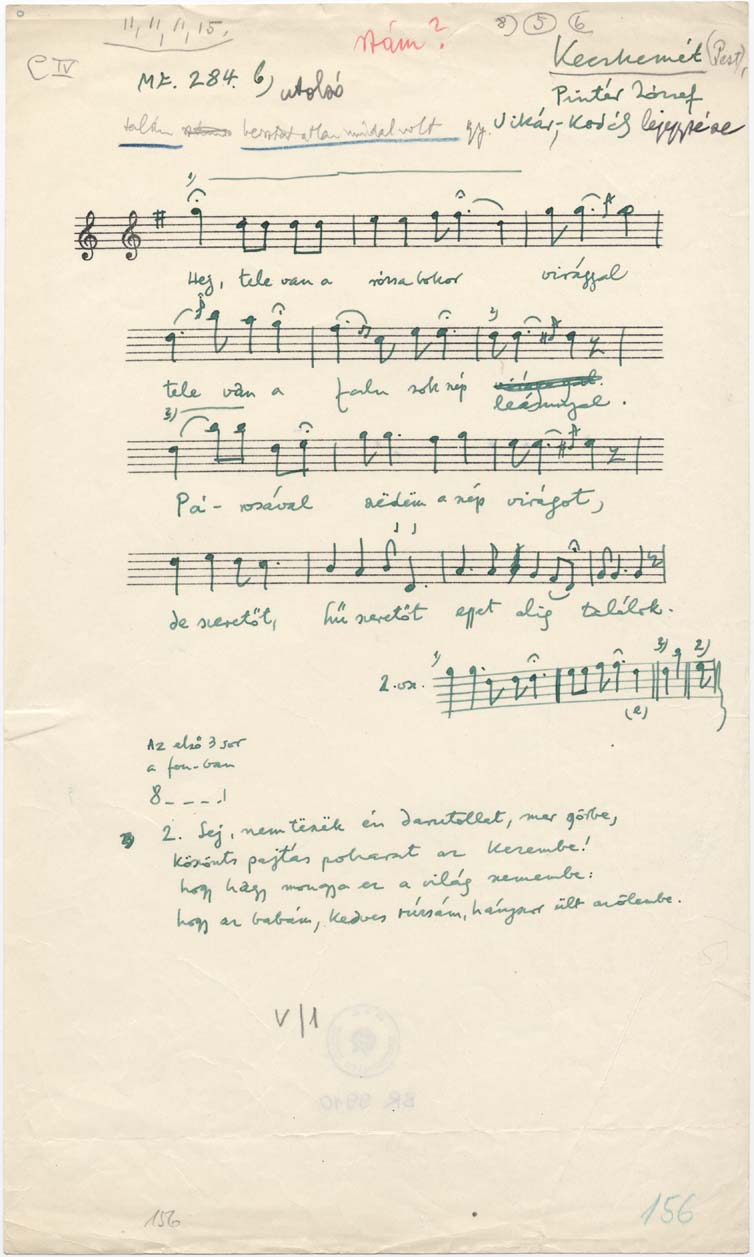 11, 11, 11, 15.
szám?
8) 5 6
C IV
MF. 284. b) utolsó
Kecskemét (Pest),
Pintér József
talán beosztatlan műdal volt
gy. Vikár, Kodály lejegyzése
1)
Hej, tele van a rózsabokor virággal
2)
tele van a falu sok szép
leánnyal.
3)
Pá- rosával szëdëm a szép virágot,
de szeretőt, hű szeretőt egyet alig találok.
2. vsz. 1) 3) 2)
(e)
Az első 3 sor
a fon-ban
8
2. Sej, nem tëszëk én darutollat, mer görbe,
Köszönts pajtás poharat az kezembe!
hogy hagy mongya ez a világ szemembe:
hogy az babám, kedves rúzsám, hányszor ült az ölembe.
V/1
BR 9910
156
156